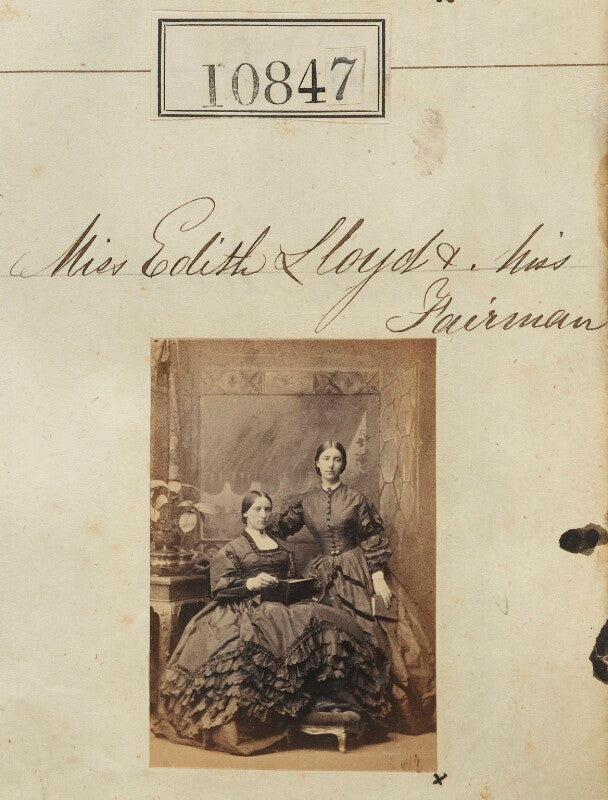 10847
Miss Edith Lloyd & Miss
Fairman